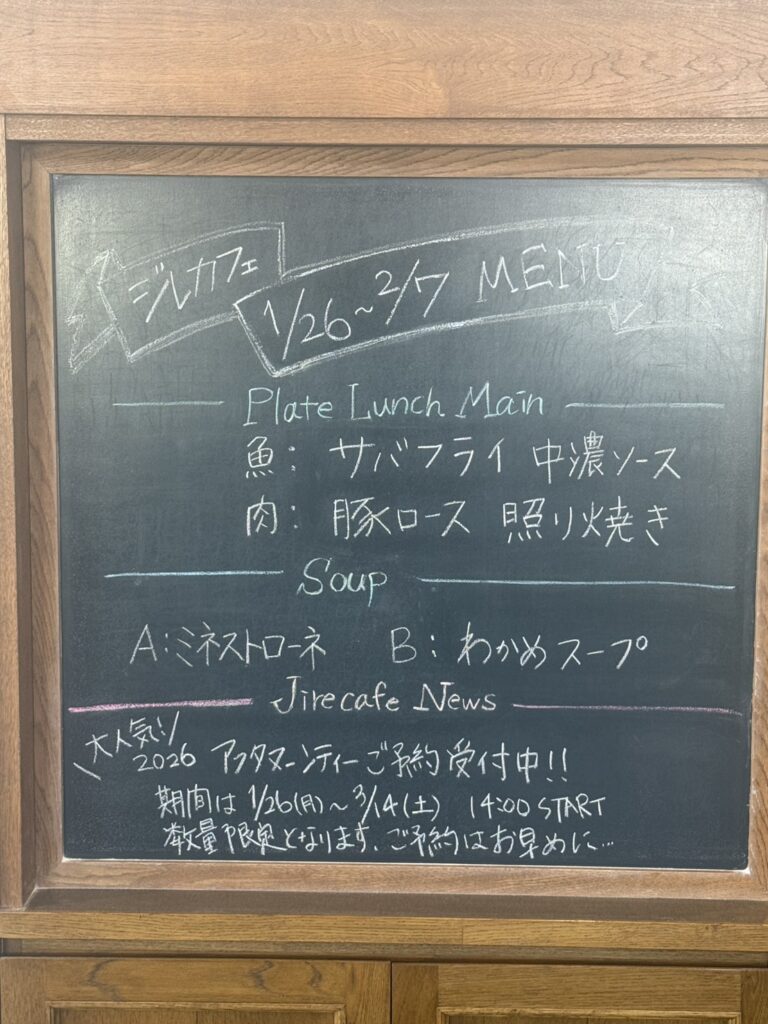 ジルカフェ
1/26~2/7 MENU
Plate Lunch Main
魚: サバフライ 中濃ソース
肉: 豚ロース 照り焼き
Soup
A:ミネストローネ B: わかめスープ
Jirecafe News
大人気!
2026 アフタヌーンティーご予約受付中!!
期間は 1/26(月)~3/14(土) 14:00 START
数量限定となります、ご予約はお早めに…